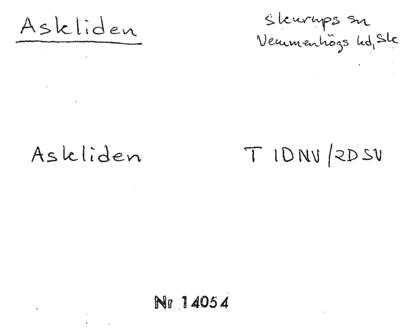 Askliden
Skurups sn
Vemmenhögs hd, Sk
Askliden
T 1DNV/2DSV
Nr 14054